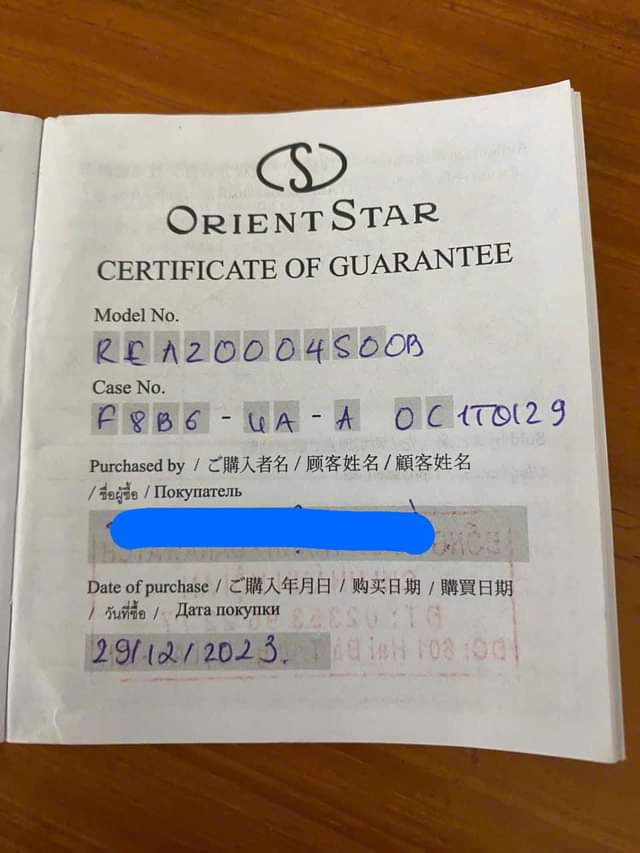 ORIENT STAR
CERTIFICATE OF GUARANTEE
Model No.
REA20004S00B
Case No.
F8B6-UA-A 0C1T0129
Purchased by / ご購入者名 / 顾客姓名 / 顧客姓名
/ ชื่อผู้ซื้อ / Покупатель
Date of purchase / ご購入年月日 / 购买日期 / 購買日期
/ วันที่ซื้อ / Дата покупки
29/12/2023.